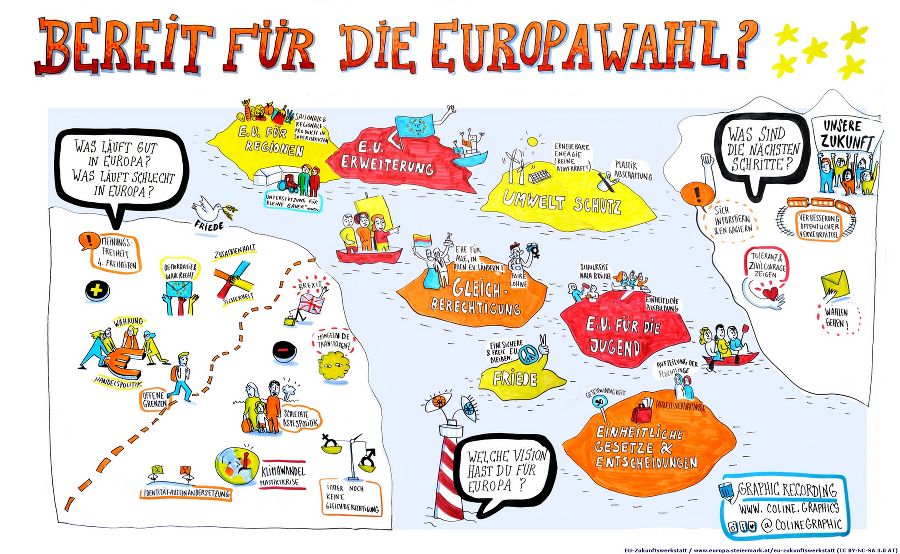 BEREIT FÜR DIE EUROPAWAHL?
WAS LÄUFT GUT
IN EUROPA?
WAS LÄUFT SCHLECHT
IN EUROPA?
MEINUNGS
FREIHEIT
4. FREIHEITEN
FRIEDE
ZUSAMMENHALT
SICHERHEIT
DEMOKRATIE &
WAHLRECHT
BREXIT
WÄHRUNG
HANDELSPOLITIK
OFFENE
GRENZEN
MANGELNDE
TRANSPARENZ
SCHLECHTE
ASYLPOLITIK
KLIMAWANDEL
IDENTITÄTSAUSEINANDERSETZUNG
IMMER NOCH
KEINE
GLEICHBERECHTIGUNG
E.U. FÜR
REGIONEN
SAISONALE &
REGIONALE
PRODUKTE IN
SUPERMÄRKTEN
UNTERSTÜTZUNG FÜR
KLEINE BAUER*INNEN
E.U.
ERWEITERUNG
ERNEUERBARE
ENERGIE
(KEINE
ATOMKRAFT)
PLASTIK
ABSCHAFFUNG
UMWELT SCHUTZ
EHE FÜR
ALLE, IN
ALLEN EU LÄNDERN
LÖHNE
GLEICH-
BERECHTIGUNG
EINHEITLICHE
AUSBILDUNG
E.U. FÜR DIE
JUGEND
EINE SICHERE
& FREIE EU
BLEIBEN
FRIEDE
AUFTEILUNG DER
FLÜCHTLINGE
GESCHWINDIGKEIT
EINHEITLICHE
GESETZE &
ENTSCHEIDUNGEN
WELCHE VISION
HAST DU FÜR
EUROPA?
WAS SIND
DIE NÄCHSTEN
SCHRITTE?
UNSERE
ZUKUNFT
SICH
INFORMIEREN
& ENGAGIEREN
VERBESSERUNG
ÖFFENTLICHER
VERKEHRSMITTEL
TOLERANZ &
ZIVILCOURAGE
ZEIGEN
WÄHLEN
GEHEN!
GRAPHIC RECORDING
WWW. COLINE.GRAPHICS
@ COLINEGRAPHIC
EU-Zukunftswerkstatt / www.europa.steiermark.at/eu-zukunftswerkstatt (CC BY-NC-SA 3.0 AT)